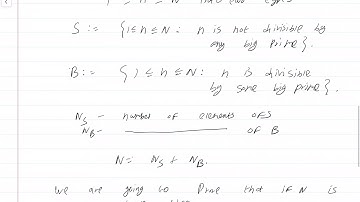 S := { 1 ≤ n ≤ N : n is not divisible by
any big prime }.
B := { 1 ≤ n ≤ N : n is divisible
by some big prime }.
N_S - number of elements of S
N_B - ———————— of B
N = N_S + N_B.
We are going to prove that if N is